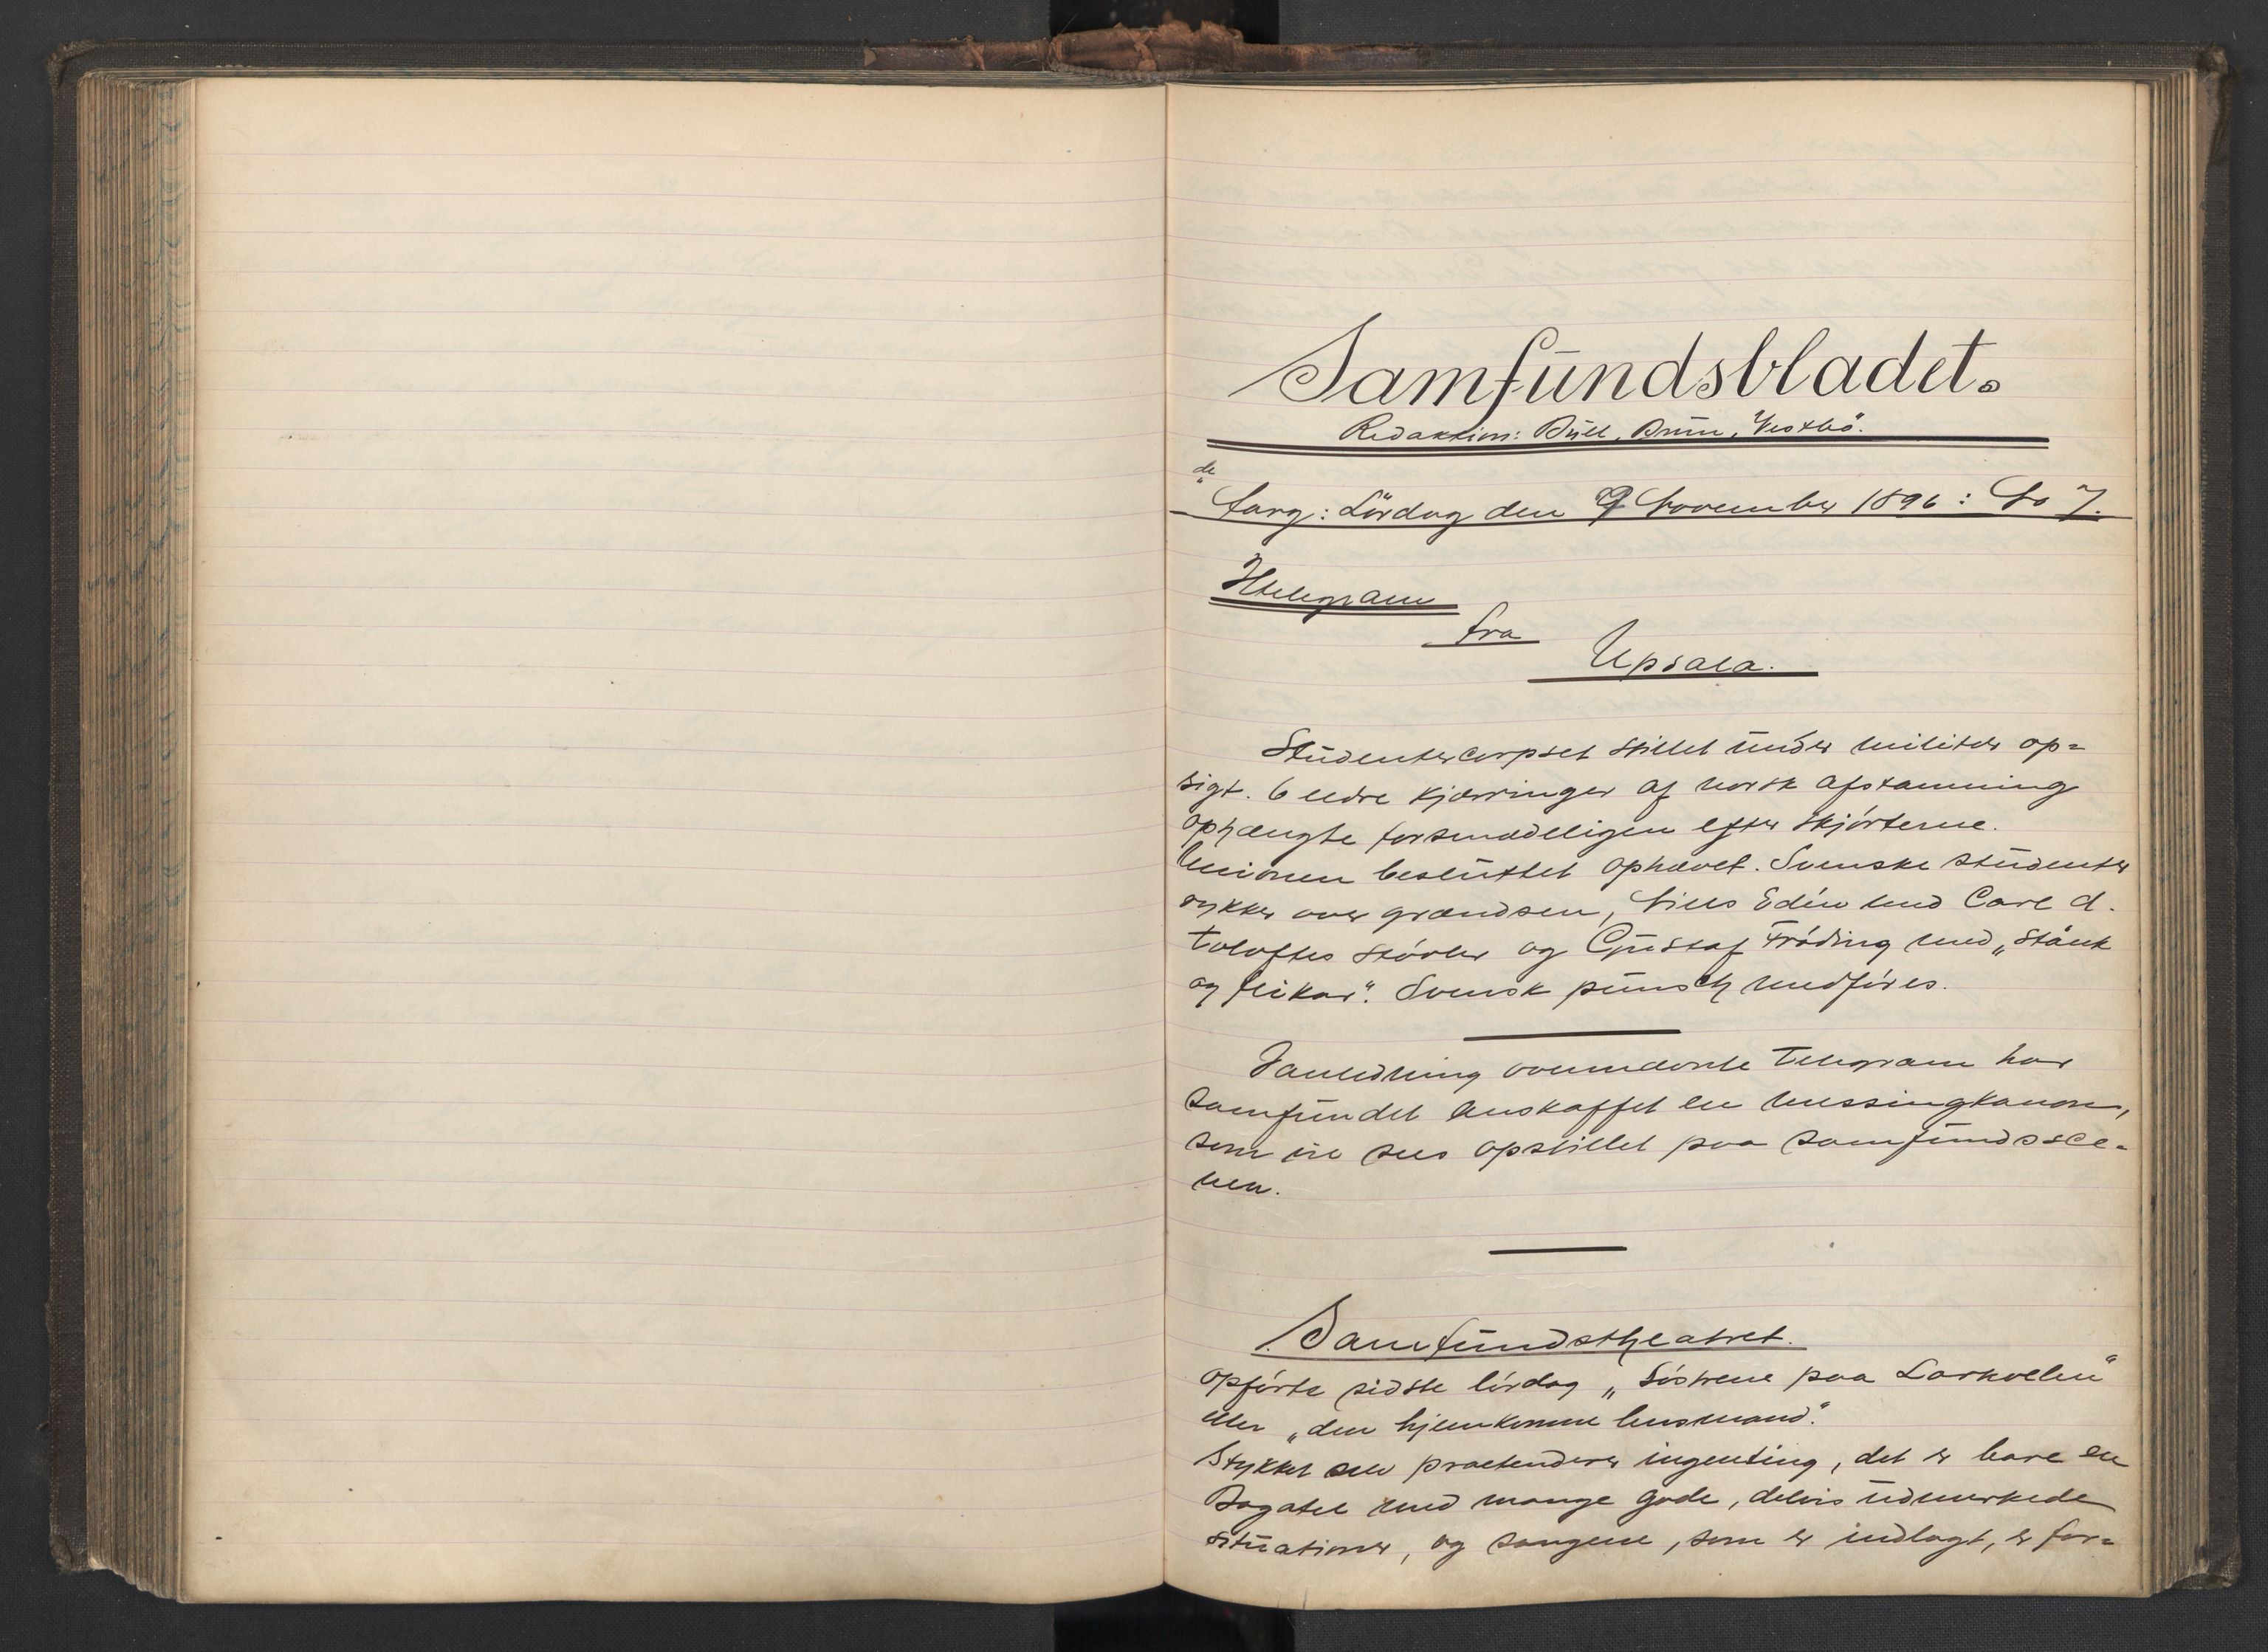 Samfundsbladet.
Redaktion: Bull, Bruun, "Vestbö".
de
Aarg: Lördag den 9 November 1896: No 7.
Iltelegram
fra
Upsala.
Studentercorpset stillet under militær op=
sigt. 6 eldre kjærringer af norsk afstamning
ophængte forsmædeligen efter skjörterne.
Unionen besluttet ophævet. Svenske studenter
rykker over grændsen, Nils Edén med Carl d.
tolvftes stövler og Gustaf Fröding med „Stänk
og flikar". Svensk punsch medföres.
I anledning ovennævnte telegram har
Samfundet anskaffet en messingkanon,
som vil sees opstillet paa Samfundssce-
nen.
Samfundstheatret.
opförte sidste lördag „Söstrene paa Larkollen"
eller „den hjemkomne husmand".
Stykket selv prætenderer ingenting, det er bare en
Bagatel med mange gode, delvis udmerkede
situationer, og sangene, som er indlagt, er for=